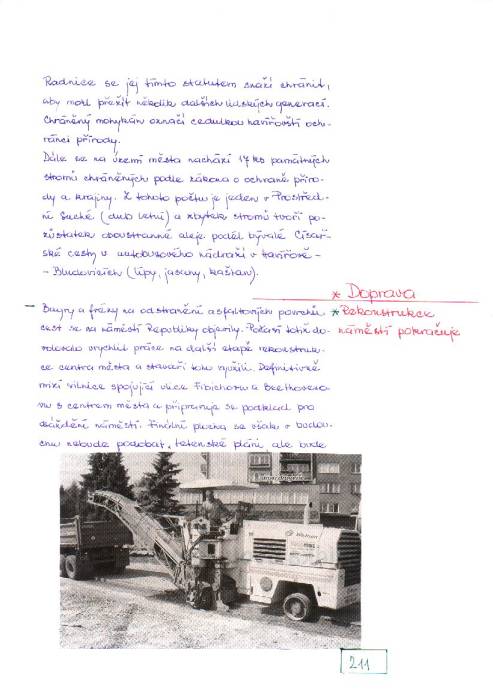 Radnice se jej tímto statutem snaží chránit,
aby mohl přežít několik dalších lidských generací.
Chráněný mohykán označí cedulkou havířovští och-
ránci přírody.
Dále se na území města nachází 17 ks památných
stromů chráněných podle zákona o ochraně příro-
dy a krajiny. Z tohoto počtu je jeden v Prostřed-
ní Suché (dub letní) a zbytek stromů tvoří po-
zůstatek oboustranné aleje podél bývalé Císař-
ské cesty u autobusového nádraží v Havířově-
- Bludovicích (lípy, jasany, kaštan).
* Doprava
- Bagry a frézy na odstranění asfaltových povrchů
* Rekonstrukce
cest se na náměstí Republiky objevily. Počasí totiž do-
náměstí pokračuje
volovalo urychlit práce na další etapě rekonstruk-
ce centra města a stavaři toho využili. Definitivně
mizí silnice spojující ulice Fibichovu a Beethoveno-
vu s centrem města a připravuje se podklad pro
dláždění náměstí. Finální plocha se však v budou-
cnu nebude podobat "letenské pláni", ale bude
211